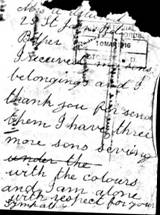 29 St
Belper
I received my sons
belongings and I
thank you for send
them I have three
more sons serving
under the
with the colours
and I am alone
with respect for your